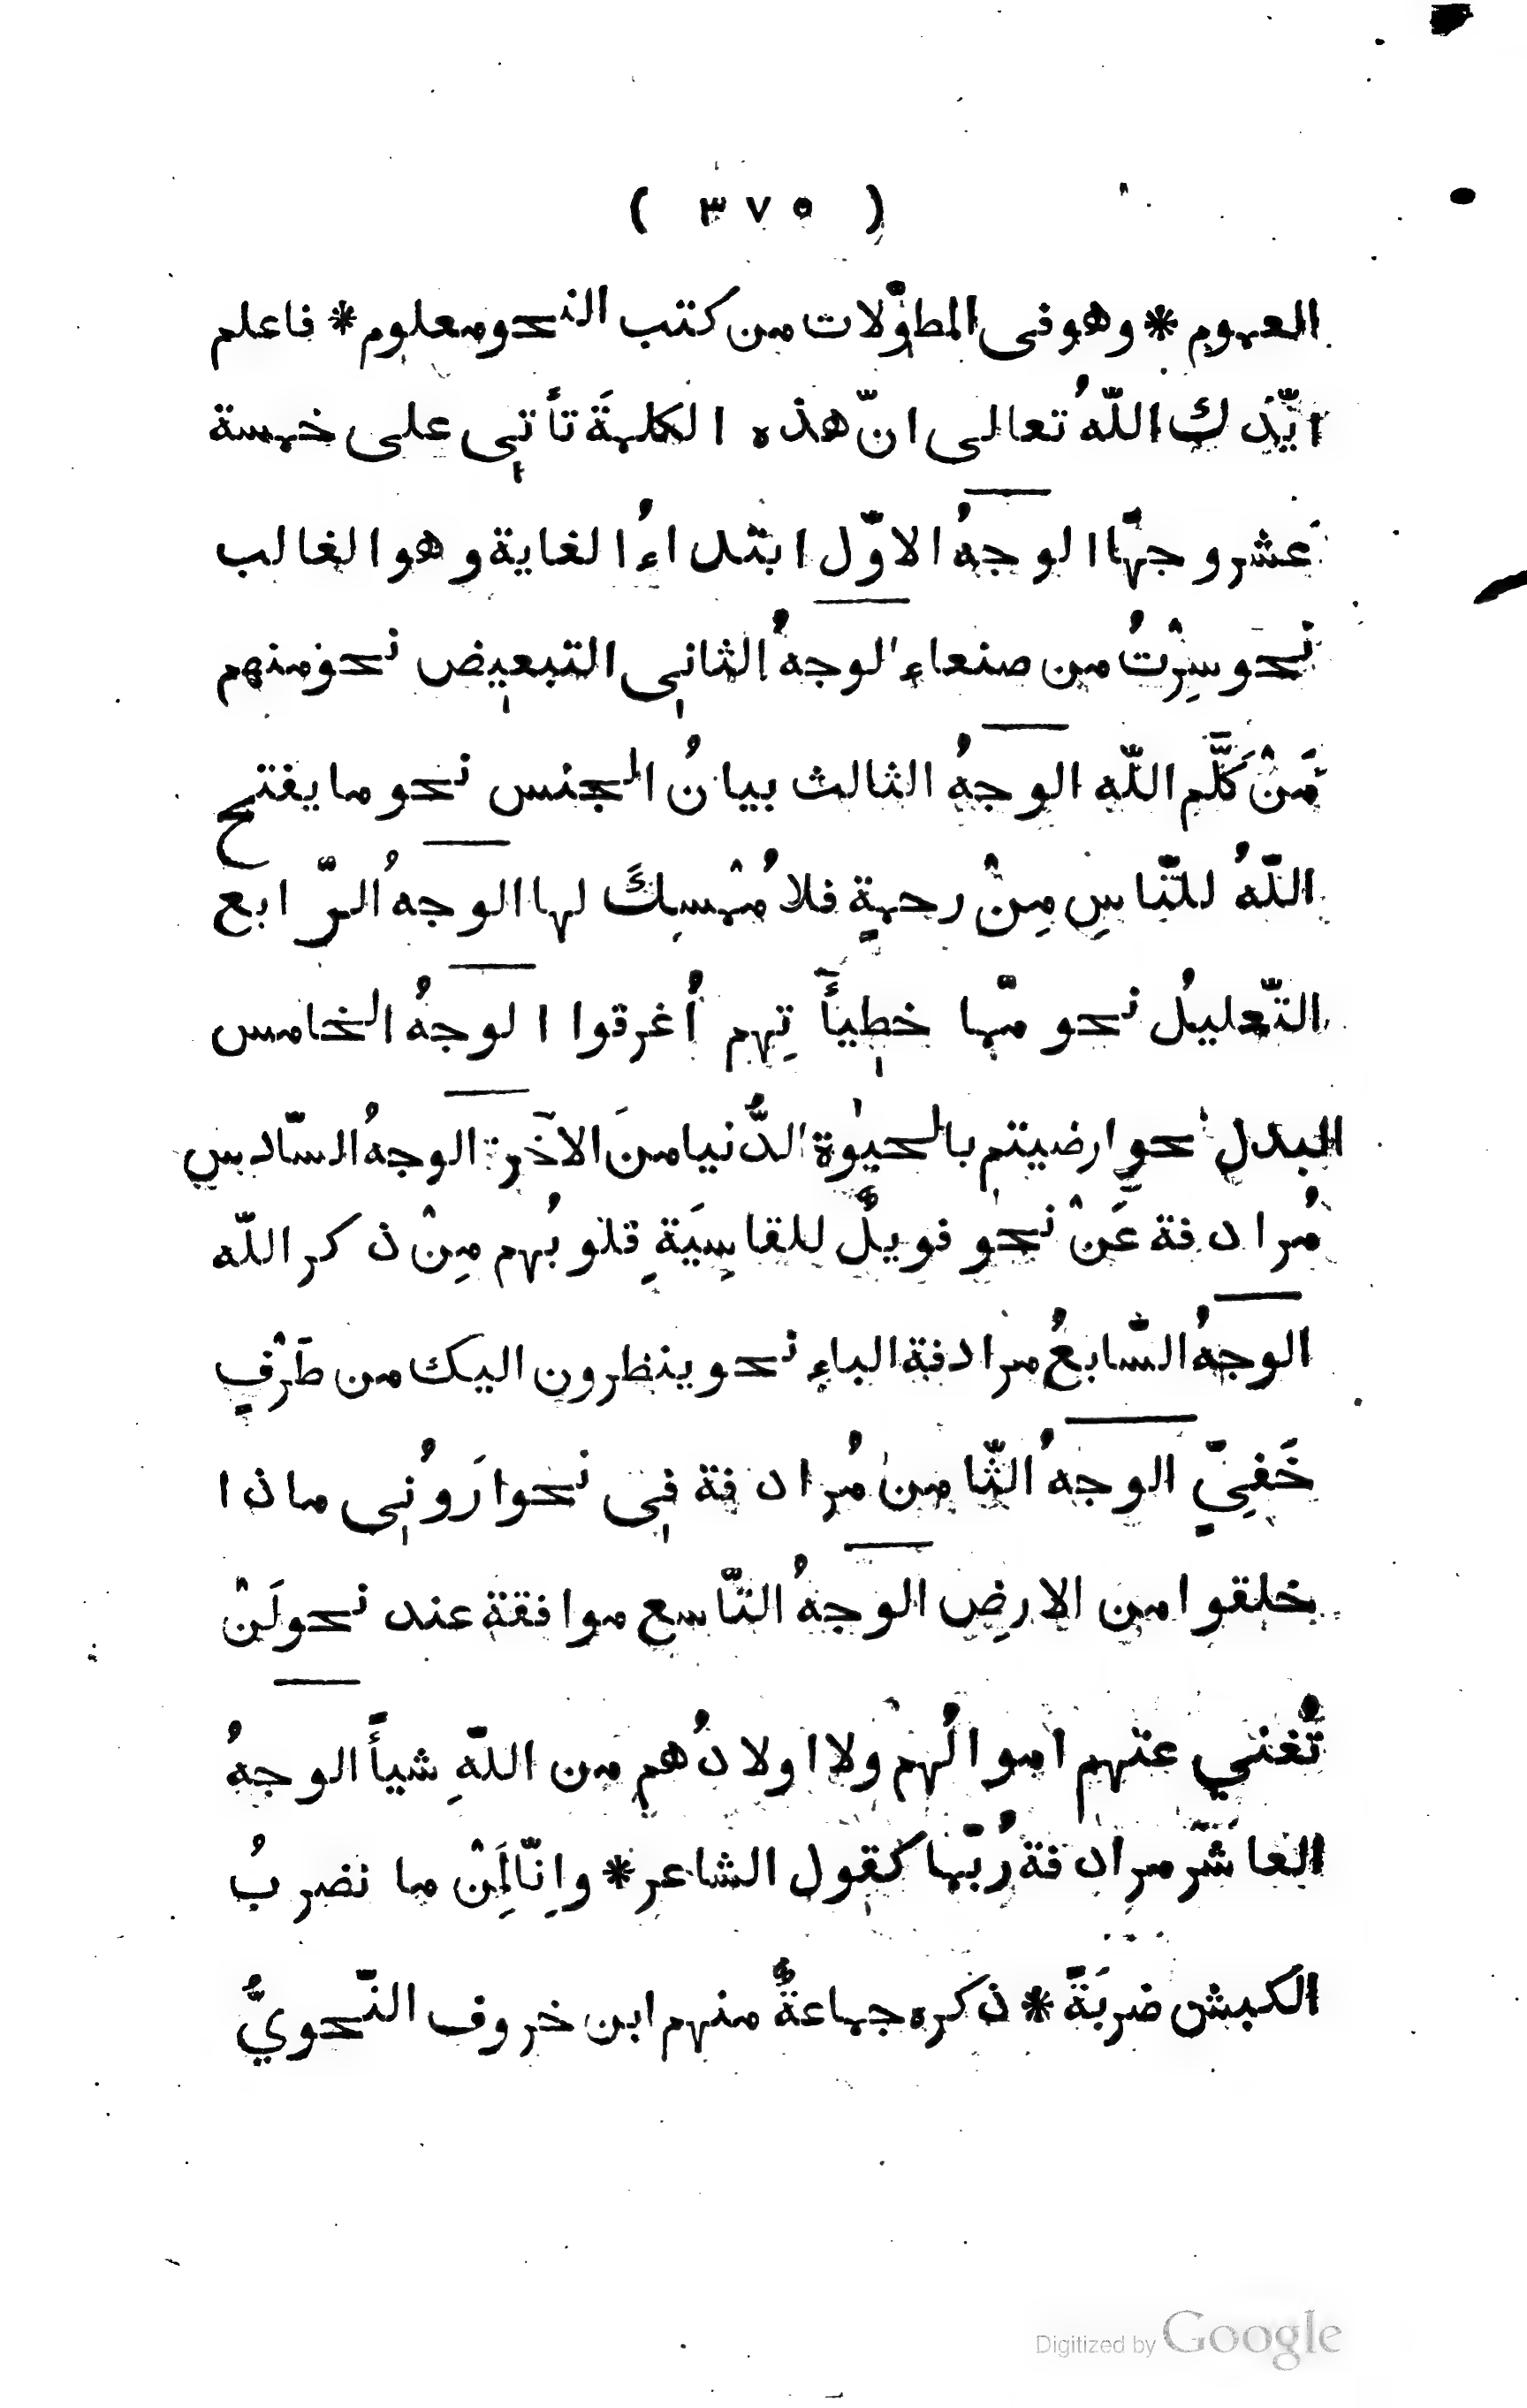 ( ٣٧٥ )
العموم * وهو فى المطوّلات من كتب النحو معلوم * فاعلم
ايّدك اللّهُ تعالى انّ هذه الكلمةَ تأتى على خمسة
عشر وجهًا الوجهُ الاوّل ابتداءُ الغاية وهو الغالب
نحو سِرْتُ من صنعاءِ الوجهُ الثانى التبعيض نحو منهم
مَنْ كَلَّم اللّه الوجهُ الثالث بيانُ الجنس نحو ما يفتح
اللّهُ للنّاسِ مِنْ رحمةٍ فلا مُمْسِكَ لها الوجهُ الرّابع
التّعليلُ نحو ممّا خطيأَتِهم أُغرقوا الوجهُ الخامس
البدل نحو ارضيتم بالحيٰوة الدُّنيا من الآخرة الوجهُ السّادس
مُرادفة عَنْ نحو فويلٌ للقاسِيَةِ قلوبُهم مِنْ ذكر اللّه
الوجهُ السّابعُ مرادفة الباءِ نحو ينظرون اليك من طَرْفٍ
خَفِيٍّ الوجهُ الثّامن مُرادفة فى نحو ارَوُنى ماذا
خلقوا من الارضِ الوجهُ التّاسع موافقة عند نحو لَنْ
تُغنى عنهم اموالُهم ولا اولادُهم من اللّهِ شيأً الوجهُ
العاشر مرادفة رُبّما كقول الشاعر * وانّا لَمِنْ ما نضربُ
الكبش ضربَةً * ذكره جماعةٌ منهم ابن خروف النّحويُّ
Digitized by Google